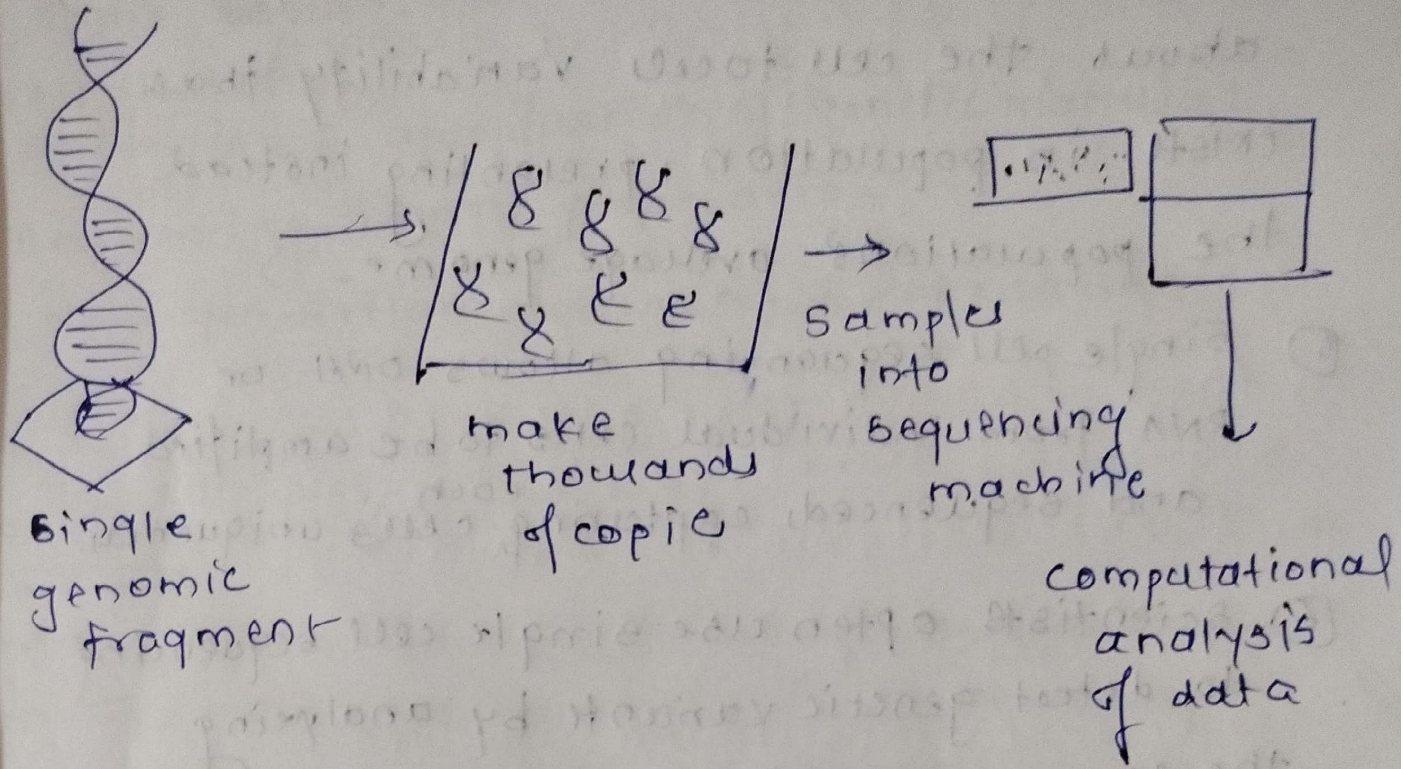 single
genomic
fragment
make
thousands
of copie
samples
into
sequencing
machine
computational
analysis
of data